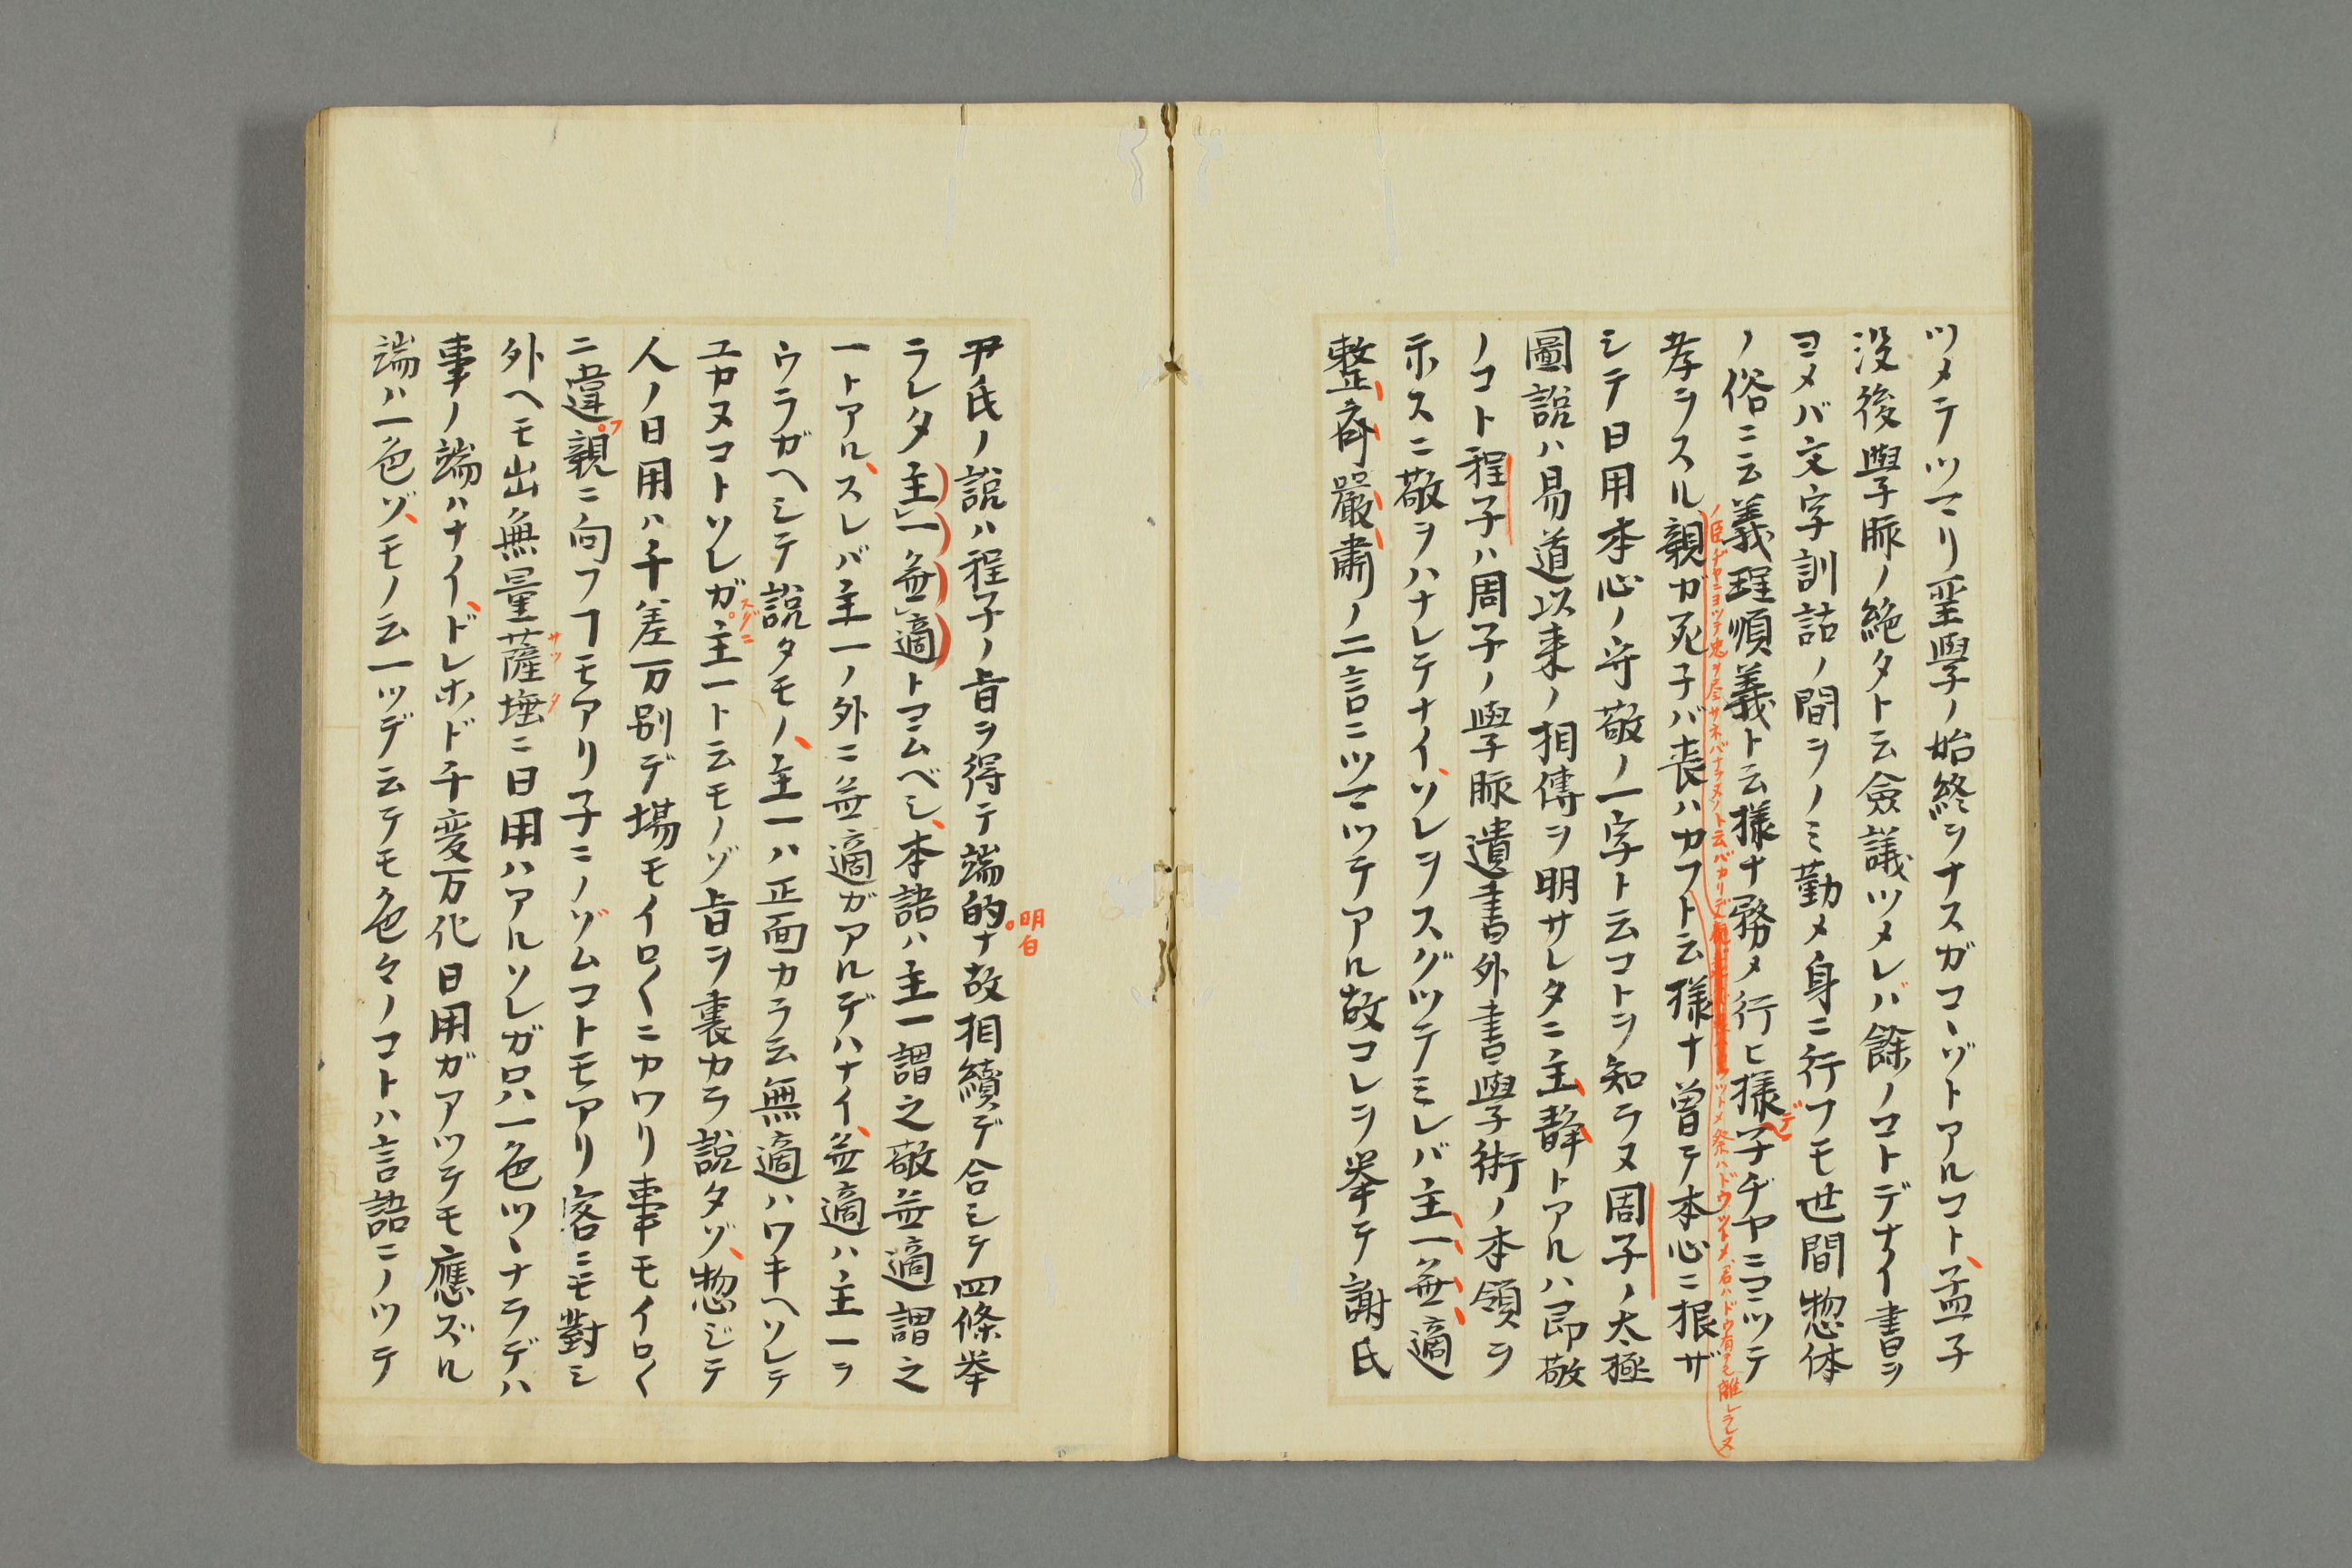 ツメテツマリ聖學ノ始終ヲナスガコヽゾトアルコト、孟子
没後學脈ノ絶タト云僉議ツメレバ餘ノコトデナイ書ヲ
ヨメバ文字訓詁ノ間ヲノミ勤メ身ニ行フモ世間惣体
ノ俗ニ云義理順義ト云様ナ務メ行ヒ様子ヂヤニヨツテ
デ
ノ臣ヂヤニヨツテ忠ヲ尽サネバナラヌノト云バカリデ
ツトメ祭ハドウツトメ、君ハドウ有テモ離レラレヌ
孝ヲスル親ガ死子バ喪ハカフト云様ナ曽テ本心ニ根ザ
シテ日用本心ノ守敬ノ一字ト云コトヲ知ラヌ周子ノ太極
圖説ハ易道以来ノ相傳ヲ明サレタニ主静トアルハ即敬
ノコト程子ハ周子ノ學脈遺書外書學術ノ本領ヲ
示スニ敬ヲハナレテナイ、ソレヲスグツテミレバ主一無適
整齊嚴肅ノ二言ニツマツテアル故コレヲ挙テ謝氏
尹氏ノ説ハ程子ノ旨ヲ得テ端的ナ故相續デ合シテ四條挙
明白
ラレタ主一無適トコムベシ、本語ハ主一謂之敬無適謂之
一トアル、スレバ主一ノ外ニ無適ガアルデハナイ、無適ハ主一ヲ
ウラガヘシテ説タモノ、主一ハ正面カラ云無適ハワキヘソレテ
ユカヌコトソレガ主一ト云モノゾ旨ヲ裏カラ説タゾ、惣ジテ
スグニ
人ノ日用ハ千差万別デ場モイロ〱ニカワリ事モイロ〱
ニ違親ニ向フコモアリ子ニノゾムコトモアリ客ニモ對シ
フ
外ヘモ出無量薩埵ニ日用ハアルソレガ只一色ツヽナラデハ
サツタ
事ノ端ハナイ、ドレホド千変万化日用ガアツテモ應ズル
端ハ一色ゾ、モノ云一ツデ云テモ色々ノコトハ言語ニノツテ